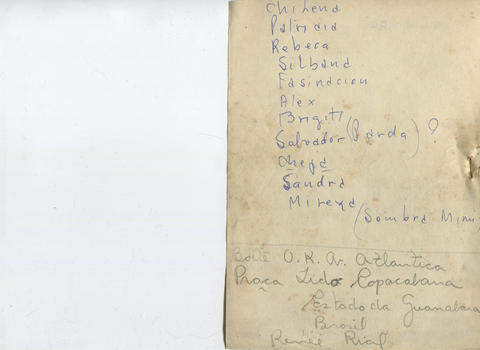 Chilena
Patricia
Rebeca
Silbana
Fasinacion
Alex
Brigitt
Salvador (Parda) ?
Cheja
Sandra
Mireya
(Sombra Minu
Boite O.K. Av. Atlantica
Praça Lido Copacabana
Estado da Guanabara
Brasil
Renée Rial